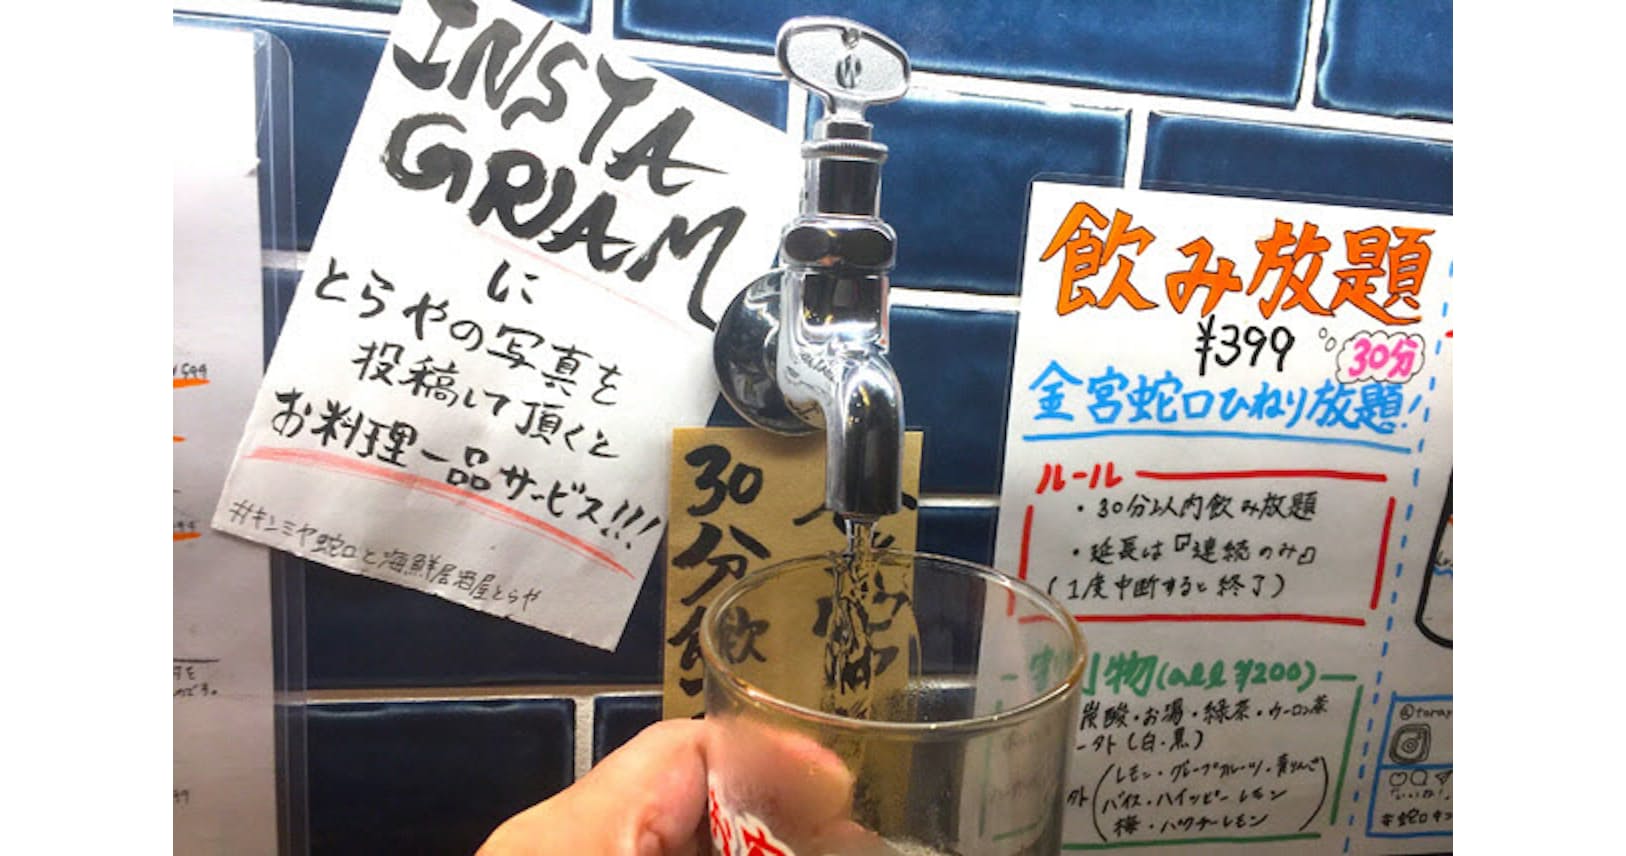 INSTA
GRAM
に
とらやの写真を
投稿して頂くと
お料理一品サービス!!!
#キンミヤ蛇口と海鮮居酒屋とらや
30分飲
飲み放題
¥399
30分
金宮蛇口ひねり放題!
ルール
・30分以内飲み放題
・延長は『連続のみ』
(1度中断すると終了)
物(all ¥200)
炭酸・お湯・緑茶・ウーロン茶
(白・黒)
レモン・グレープフルーツ・青りんご
バイス・ハイッピーレモン
梅・ハワナーレモン